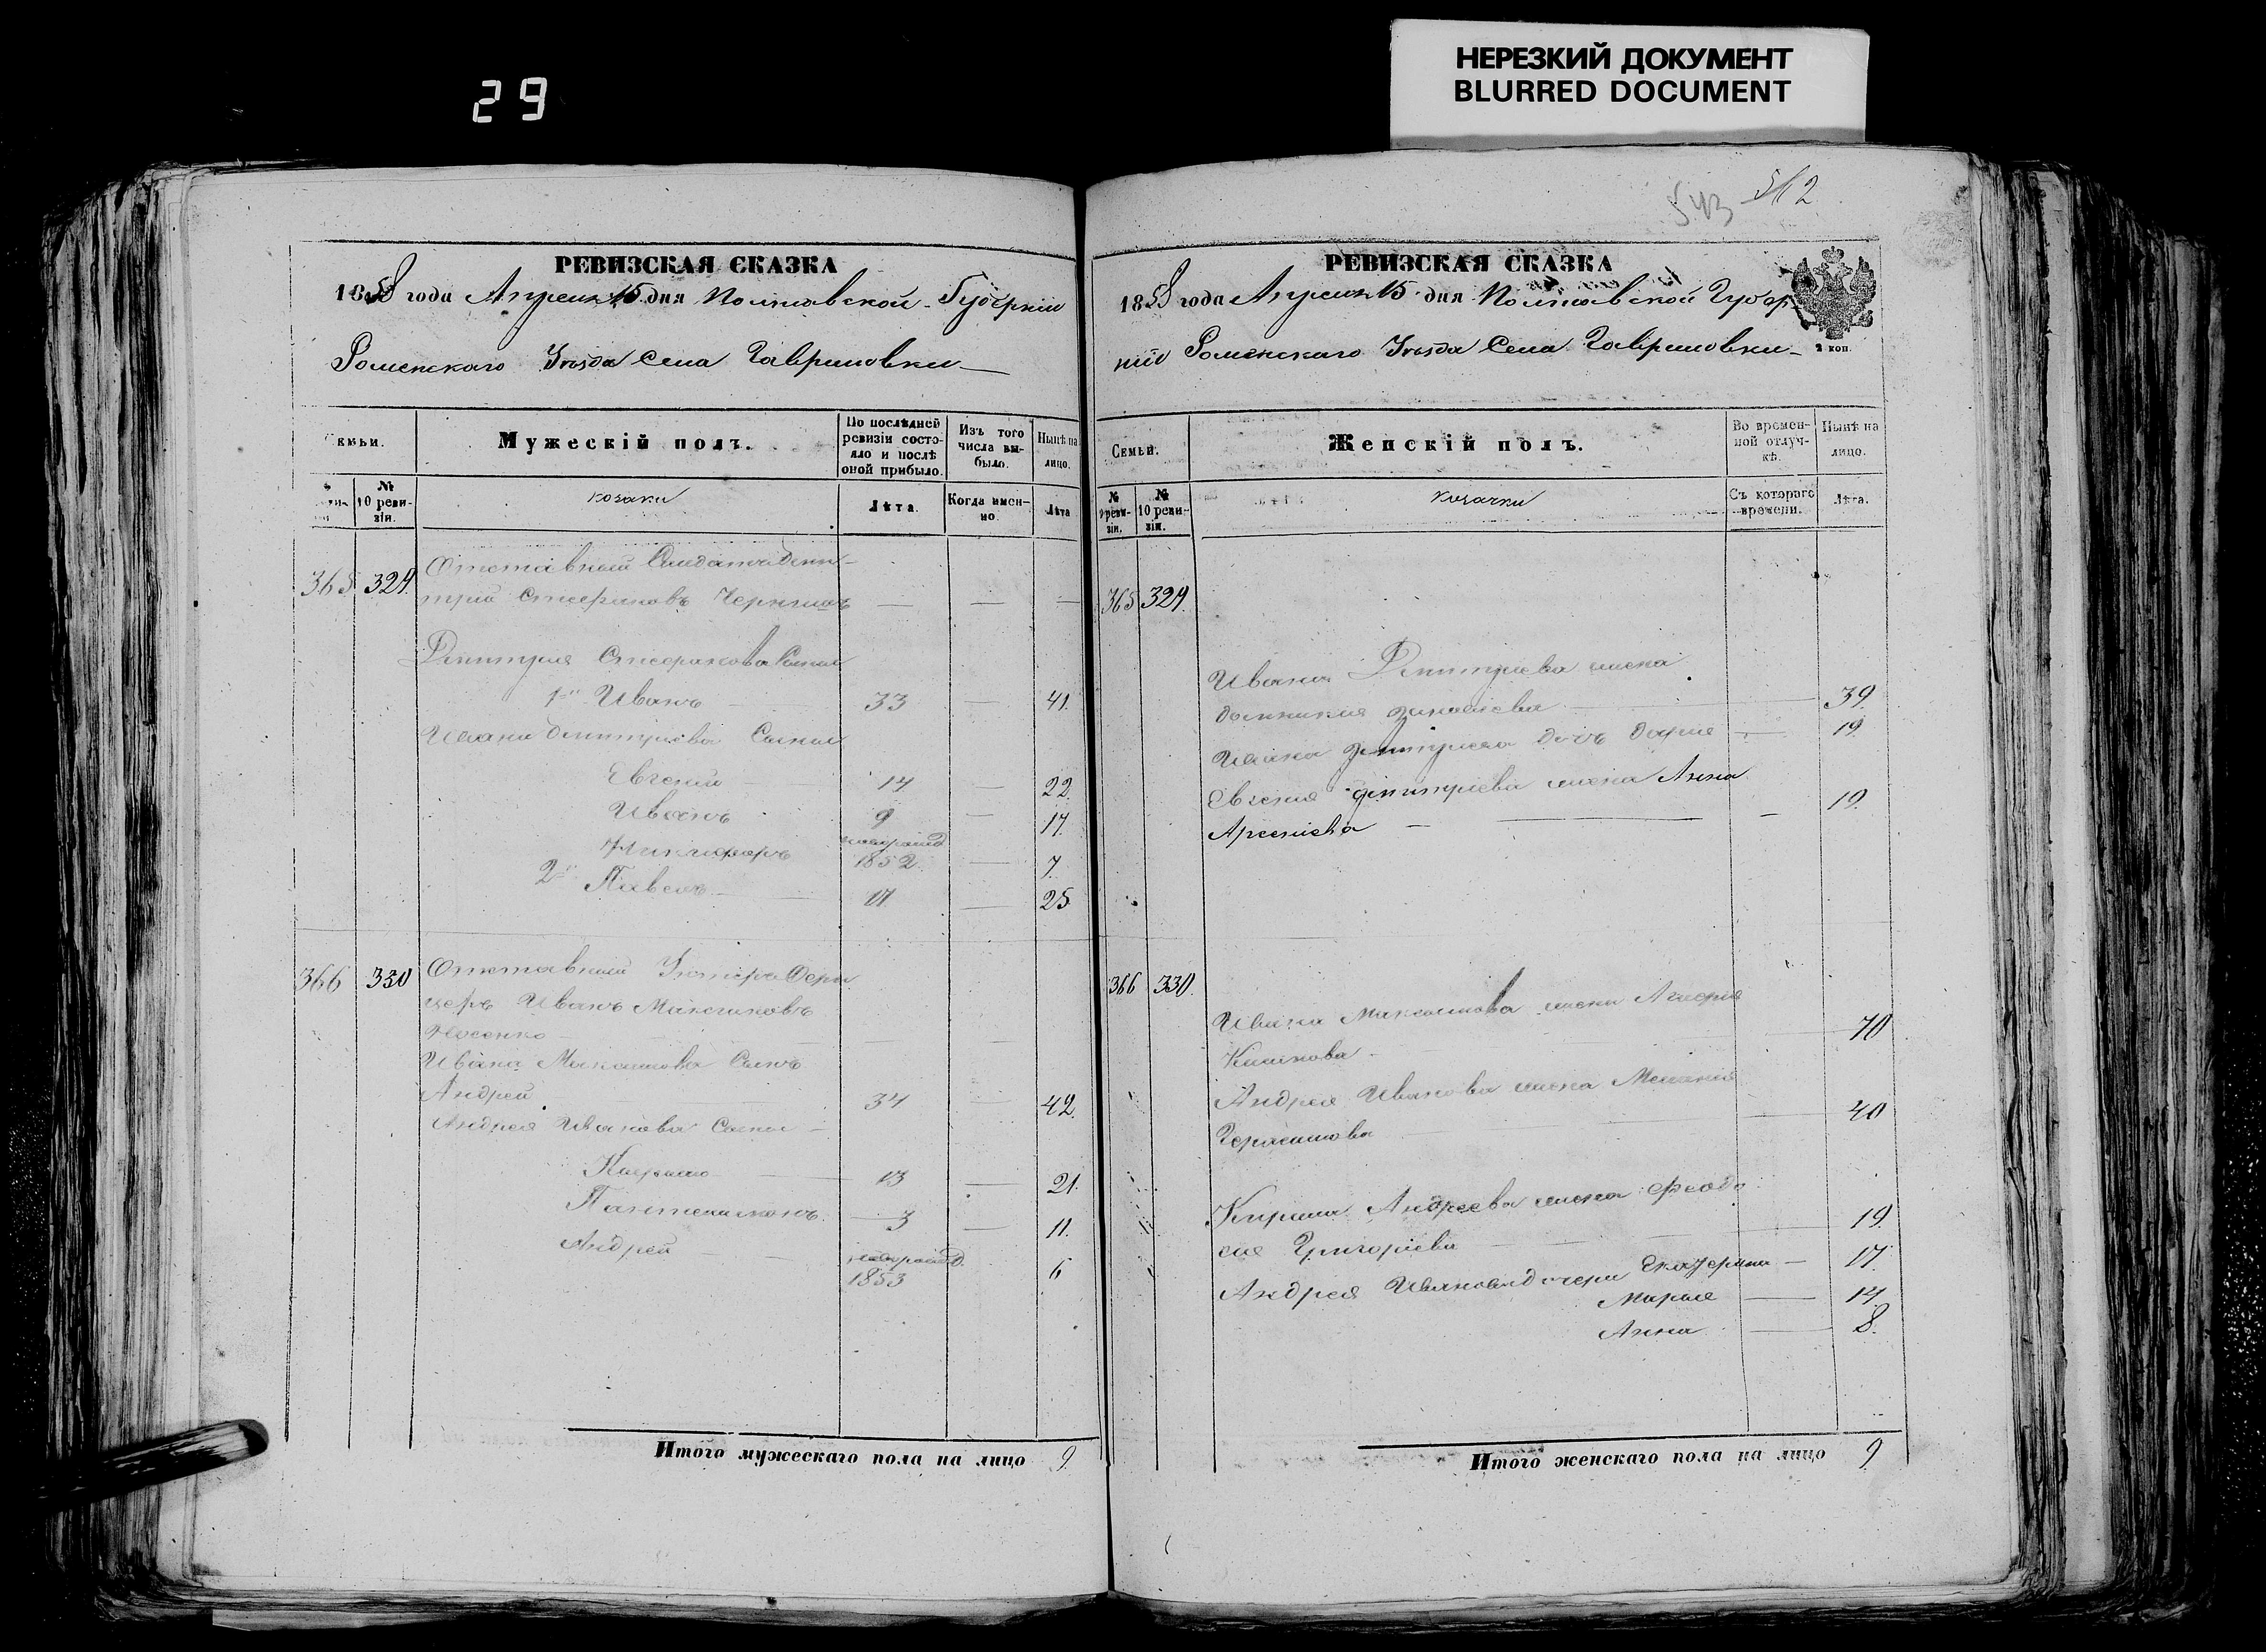 НЕРЕЗКИЙ ДОКУМЕНТ
BLURRED DOCUMENT
29
543 542
РЕВИЗСКАЯ СКАЗКА
1858 года Апреля 15 дня Полтавской Губернии
Роменскаго Уезда Села Гавриловки
Семьи.
Мужескій полъ.
По послѣдней ревизіи состояло и послѣ оной прибыло.
Изъ того числа выбыло.
Нынѣ на лицо.
№ ревизіи
№ 10 ревизіи.
козаки
Лѣта.
Когда именно.
Лѣта
365 329. Отставный Солдатъ Дмитрій Стефановъ
Дмитрія Стефанова Сыны
1й Иванъ 33 41.
Ивана Дмитріева Сыны
Евгений 14 22
Иванъ 9 17.
Никифоръ новорожд 1852 7.
2й Павелъ 17 25
366 330 Отставный Унтеръ Офицеръ Иванъ Максимовъ
Носенко
Ивана Максимова Сынъ
Андрей 34 42.
Андрея Иванова Сыны
Кирило 13 21.
Пантелимонъ 3 11.
Андрей новорожд. 1853 6
Итого мужескаго пола на лицо 9
РЕВИЗСКАЯ СКАЗКА
1858 года Апреля 15 дня Полтавской Губер
нии Роменскаго Уезда Села Гавриловки
2 коп.
Семьи.
Женскій полъ.
Во временной отлучкѣ.
Нынѣ на лицо.
№ 9 ревизіи.
№ 10 ревизіи.
козачки
Съ котораго времени.
Лѣта.
365 329.
Ивана Дмитриева жена
39.
Ивана Дмитриева дочь Дария 19
Евгения Дмитриева жена Анна
Арсениева 19.
366 330.
Ивана Максимова жена
70
Андрея Иванова жена Мелания
Герасимова 40
Кирила Андреева жена Феодо
сия Григориева 19.
Андрея Иванова дочери Екатерина 17.
Мария 14.
Анна 8.
Итого женскаго пола на лицо 9